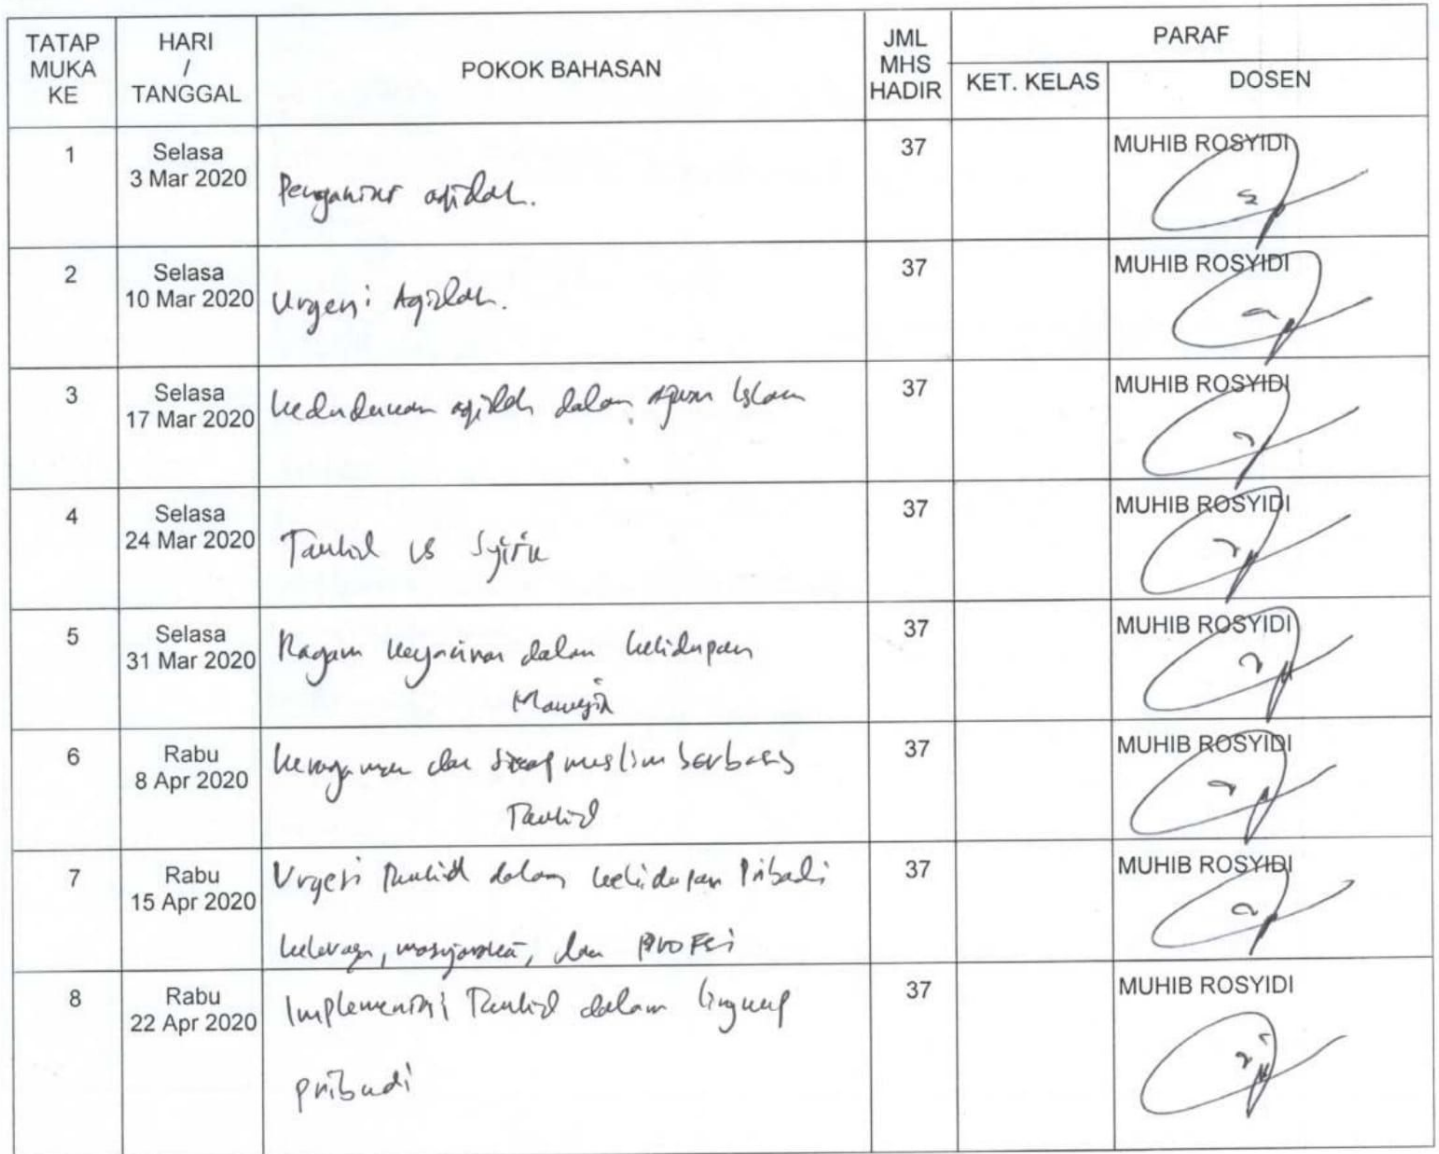 TATAP MUKA KE
HARI / TANGGAL
POKOK BAHASAN
JML MHS HADIR
PARAF
KET. KELAS
DOSEN
1
Selasa
3 Mar 2020
aqidah.
37
MUHIB ROSYIDI
2
Selasa
10 Mar 2020
Urgensi Aqidah.
37
MUHIB ROSYIDI
3
Selasa
17 Mar 2020
Kedudukan aqidah dalam agama Islam
37
MUHIB ROSYIDI
4
Selasa
24 Mar 2020
Tauhid vs Syirik
37
MUHIB ROSYIDI
5
Selasa
31 Mar 2020
Ragam keyakinan dalam kehidupan
Manusia
37
MUHIB ROSYIDI
6
Rabu
8 Apr 2020
Keragaman dan sikap muslim berbasis
Tauhid
37
MUHIB ROSYIDI
7
Rabu
15 Apr 2020
Urgensi Tauhid dalam kehidupan Pribadi
keluarga, masyarakat, dan Profesi
37
MUHIB ROSYIDI
8
Rabu
22 Apr 2020
Implementasi Tauhid dalam lingkup
pribadi
37
MUHIB ROSYIDI